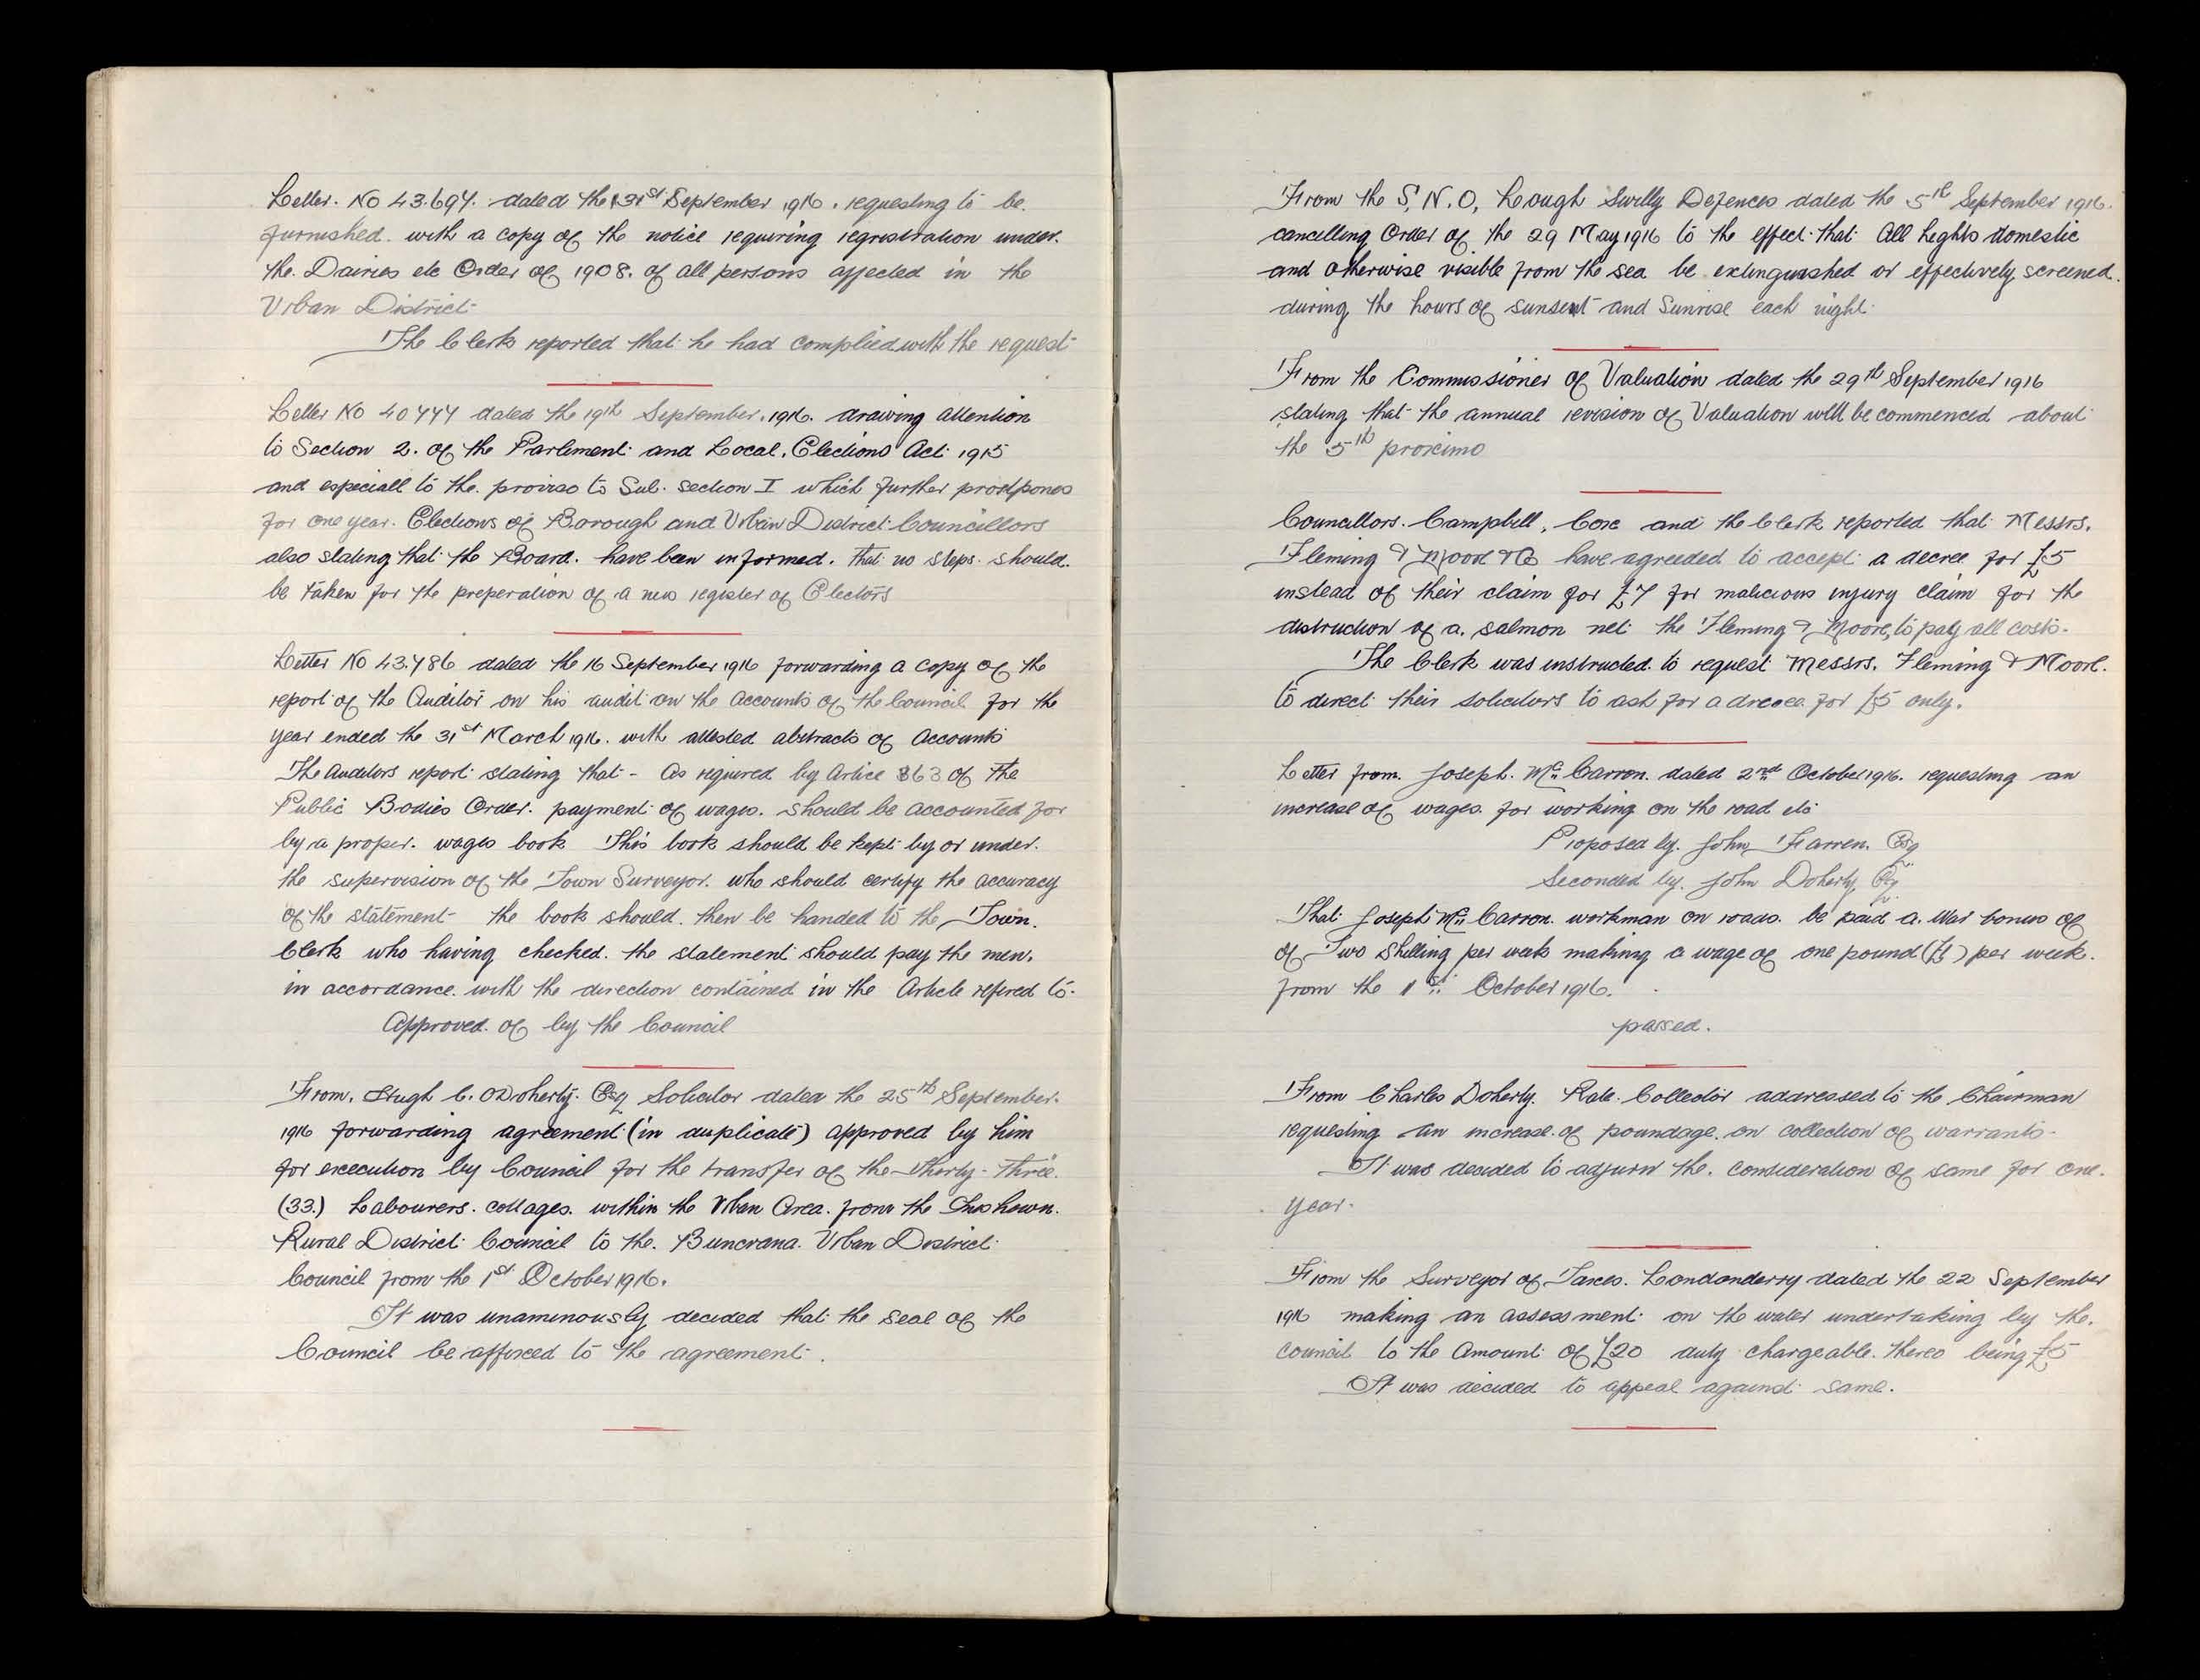 Letter. No 43.694. dated the 31st September 1916. requesting to be.
furnished. with a copy of the notice requring regristration under.
the. Dairies etc Order of 1908. of all persons affected in the
Urban District
The Clerk reported that he had complied with the request
Letter No 40444 dated the 19th September. 1916. drawing attention
to Section 2. of the Parlement and Local. Elections Act 1915
and especiall to the. proviso to Sub. section I which further prostpones
for one year. Elections of Borough and Urban District Councillors
also stating that the Board. have been informed. that no steps. should.
be taken for the preperation of a new register of Electors
Letter No 43.486 dated the 16 September 1916 forwarding a copy of the
report of the Auditor on his audit on the Accounts of the Council for the
year ended the 31st March 1916. with attested abstracts of Accounts
The Auditors report stating that - As required by Artice 363 of the
Public Bodies Order. payment of wages. should be accounted for
by a proper. wages book This book should be kept by or under.
the supervision of the Town Surveyor. who should certify the accuracy
of the statement - the book should. then be handed to the Town.
Clerk who having checked. the statement should pay the men.
in accordance. with the direction contained in the Article refered to.
Approved. of by the Council
From. Hugh C. ODoherty. Esq Solicitor dated the 25th September.
1916 forwarding agreement (in duplicate) approved by him
for execution by Council for the transfer of the Therty-three.
(33.) Labourers. cottages. within the Urban Area. from the Inishowen.
Rural District Council to the. Buncrana. Urban District
Council from the 1st October 1916.
It was unaminously decided that the seal of the
Council be affixed to the agreement.
From the S. N. O, Lough Swilly Defences dated the 5th September 1916.
cancelling Order of the 29 May 1916 to the effect that All Lights domestic
and otherwise visible from the sea be extinguished or effectively screened.
during the hours of sunset and Sunrise each night.
From the Commissioner of Valuation dated the 29th September 1916
stating that the annual revision of Valuation will be commenced about
the 5th proximo
Councillors. Campbell, Coxe and the Clerk reported that Messrs.
Fleming & Moore & Co have agreeded to accept a decree for £5
instead of their claim for £7 for malicious injury claim for the
distruction of a. salmon net the Fleming & Moore, to pay all costs.
The Clerk was instructed. to request Messrs. Fleming & Moore.
to direct their solicitors to ask for a drecee for £5 only.
Letter from. Joseph. Mc Carron. dated 2nd October 1916. requesting an
increase of wages. for working on the road etc
Proposed by. John Farren. Esq
Seconded by. John Doherty, Esq
That Joseph Mc Carron. workman on roads. be paid a. War bonus of
of Two Shilling per week making a wage of one pound (£1) per week.
from the 1st October 1916.
passed.
From Charles Doherty. Rate. Collector addressed to the Chairman
requesting an increase. of poundage. on collection of warrants -
It was decided to adjurn the. consideration of same for one.
year.
From the Surveyor of Taxes. Londonderry dated the 22 September
1916 making an assessment on the water undertaking by the.
Council to the Amount of £20 duty chargeable. thereo being £5
It was decided to appeal against same.